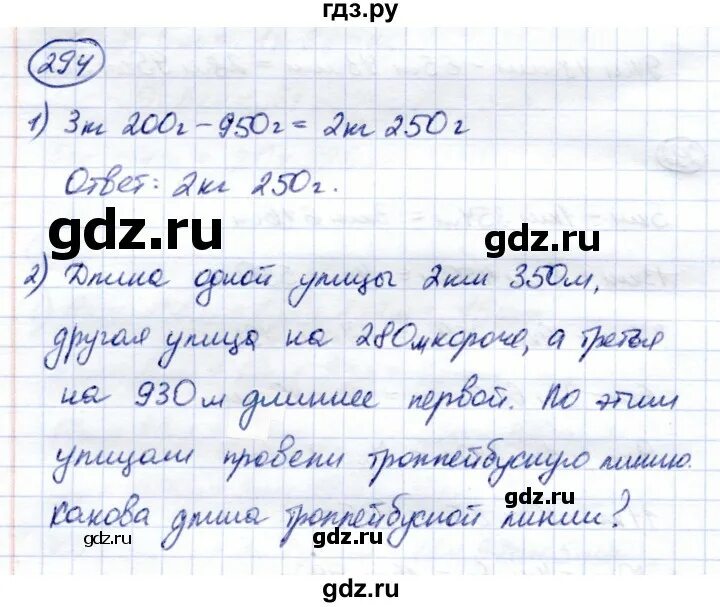 гдз.ру
294
1) 3кг 200г - 950г = 2кг 250г
Ответ: 2кг 250г.
gdz.ru
gdz.ru
2) Длина одной улицы 2км 350м,
другая улица на 280м короче, а третья
на 930м длиннее первой. По этим
улицам провели троллейбусную линию.
gdz.ru
Какова длина троллейбусной линии?
gdz.ru
gdz.ru
gdz.ru